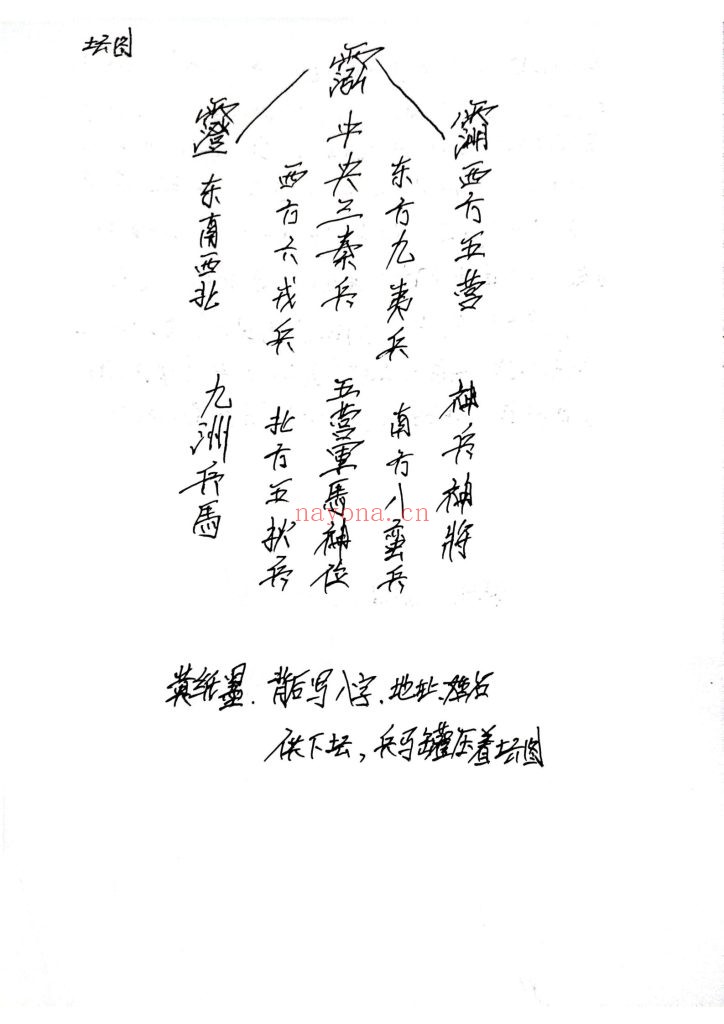 坛图
西方五营 神兵神將
东方九夷兵 南方八蛮兵
中央三秦兵 五营軍馬神位
西方六戎兵 北方五狄兵
东南西北 九洲兵馬
nayona.cn
黄纸墨.背后写八字.地址.坛名
供下坛,兵马罐压着坛图